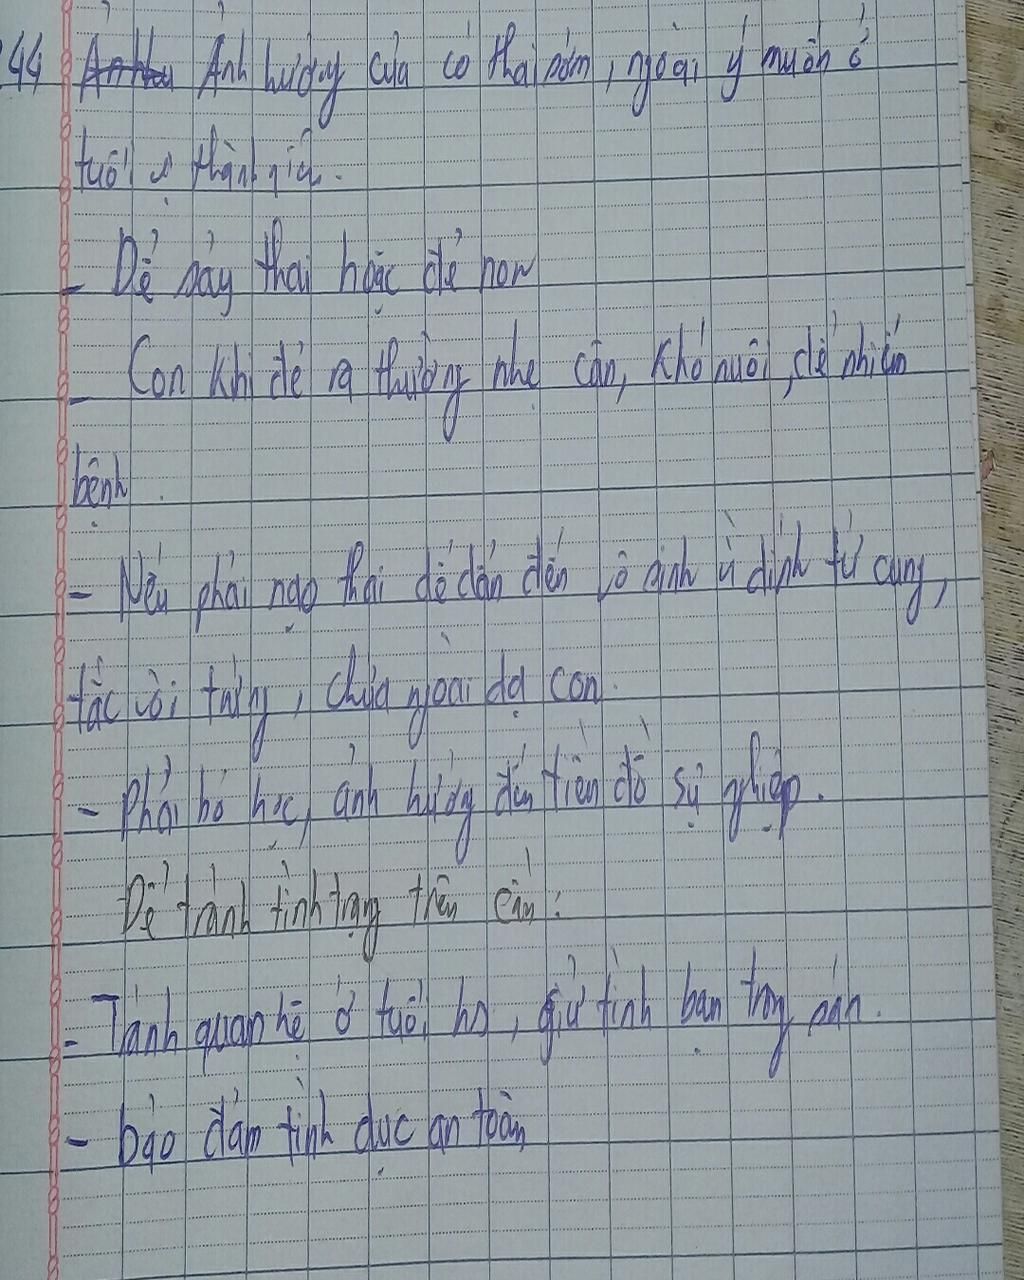 44 Ảnh hưởng của có thai sớm, ngoài ý muốn ở
tuổi vị thành niên.
- Dễ sảy thai hoặc đẻ non
- Con khi đẻ ra thường nhẹ cân, khó nuôi, dễ nhiễm
bệnh.
- Nếu phải nạo thai dễ dẫn đến vô sinh vì dính tử cung,
tắc vòi trứng, chửa ngoài dạ con.
- Phải bỏ học, ảnh hưởng đến tiền đồ sự nghiệp.
Để tránh tình trạng trên cần:
- Tránh quan hệ ở tuổi hs, giữ tình bạn trong sán.
- bảo đảm tình dục an toàn